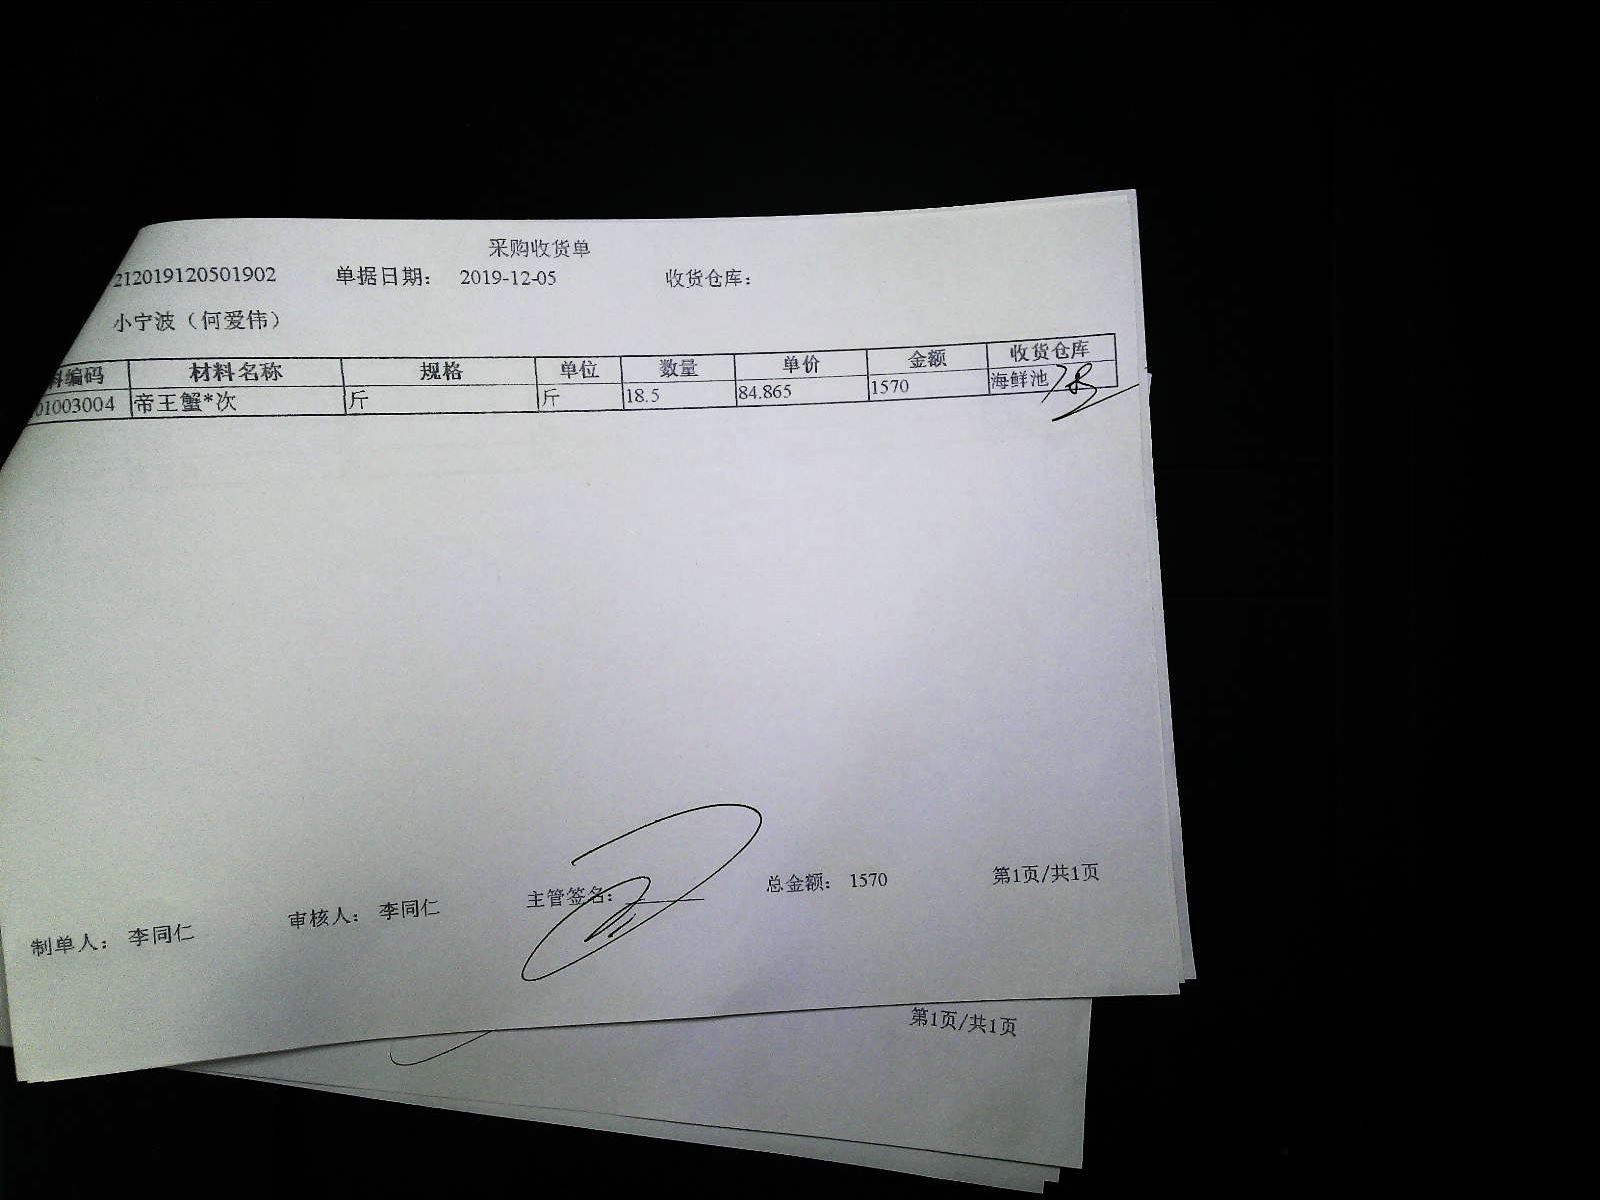 采购收货单
212019120501902 单据日期： 2019-12-05 收货仓库：
小宁波（何爱伟）
料编码 材料名称 规格 单位 数量 单价 金额 收货仓库
01003004 帝王蟹*次 斤 斤 18.5 84.865 1570 海鲜池
制单人： 李同仁 审核人： 李同仁 主管签名： 总金额： 1570 第1页/共1页
第1页/共1页